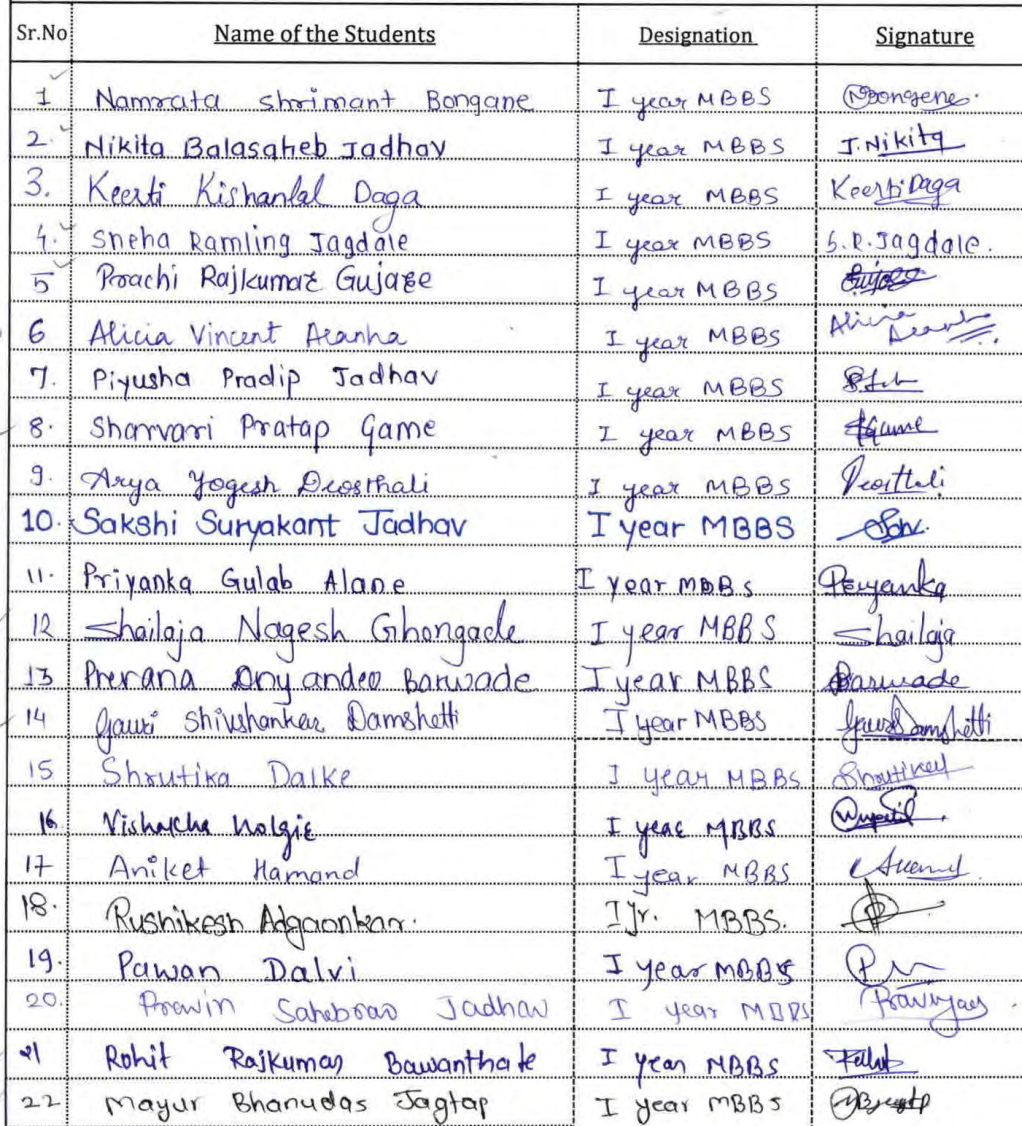 Sr.No Name of the Students Designation Signature
1 Namrata Shrimant Bongane I year MBBS
2. Nikita Balasaheb Jadhav I year MBBS J.Nikita
3. Keerti Kishanlal Daga I year MBBS Keerti Daga
4. Sneha Ramling Jagdale I year MBBS S.R.Jagdale.
5 Prachi Rajkumar Gujare I year MBBS
6 Alicia Vincent Aranha I year MBBS Alicia Aranha
7. Piyusha Pradip Jadhav I year MBBS
8. Sharvari Pratap Game I year MBBS
9. Arya Yogesh Deosthali I year MBBS Deosthali
10. Sakshi Suryakant Jadhav I year MBBS
11. Priyanka Gulab Alane I year MBBS Priyanka
12 Shailaja Nagesh Ghongade I year MBBS Shailaja
13 Prerana Dnyandeo Barwade I year MBBS Barwade
14 Gauri Shivshankar Damshetti I year MBBS Gauri Damshetti
15 Shrutika Dalke I year MBBS
16 Vishakha I year MBBS
17 Aniket Hamand I year MBBS
18. Rushikesh Adgaonkar. I Yr. MBBS.
19. Pawan Dalvi I year MBBS
20. Prawin Sahebrao Jadhav I year MBBS
21 Rohit Rajkumar Bawanthade I year MBBS
22 Mayur Bhanudas Jagtap I year MBBS